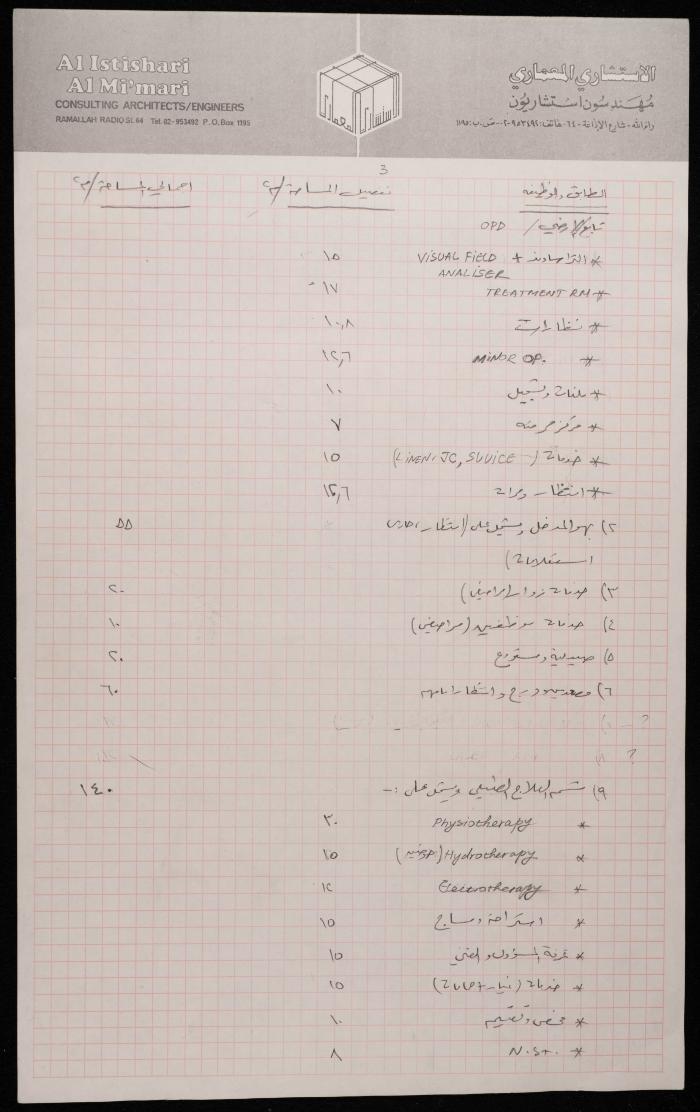 Al Istishari
Al Mi'mari
CONSULTING ARCHITECTS/ENGINEERS
RAMALLAH RADIO St. 64 Tel. 02-953492 P.O.Box 1195
الاستشاري المعماري
مهندسون استشاريون
رام الله - شارع الإذاعة - ٦٤ - هاتف: ٩٥٣٤٩٢-٠٢ - ص.ب: ١١٩٥
3
الطابق والوظيفة تفصيل المساحة/م٢ اجمالي المساحة/م٢
تابع الارضي / OPD
* التراساوند + VISUAL FIELD ANALISER ١٥
* TREATMENT RM ١٧
* نظارات ١٠,٨
* MINOR OP. ١٢,٦
* ملفات وتسجيل ١٠
* مركز ممرضة ٧
* خدمات (LINEN, JC, ١٥
* انتظار وممرات ١٢,٦
٢) بهو المدخل ويشتمل على (انتظار، ٥٥
استعلامات)
٣) خدمات زوار (مراحيض) ٢٠
٤) خدمات موظفين (مراحيض) ١٠
٥) صيدلية ومستودع ٢٠
٦) مصعدين ودرج وانتظار امامهم ٦٠
?
?
٩) قسم العلاج الطبيعي ويشتمل على :- ١٤٠
* Physiotherapy ٣٠
* Hydrotherapy ١٥
* Electrotherapy ١٢
* استراحة ومساج ١٥
* غرفة المسؤول والفني ١٥
* خدمات (غيار + حمامات) ١٥
* فحص وتقييم ١٠
* N.St. ٨